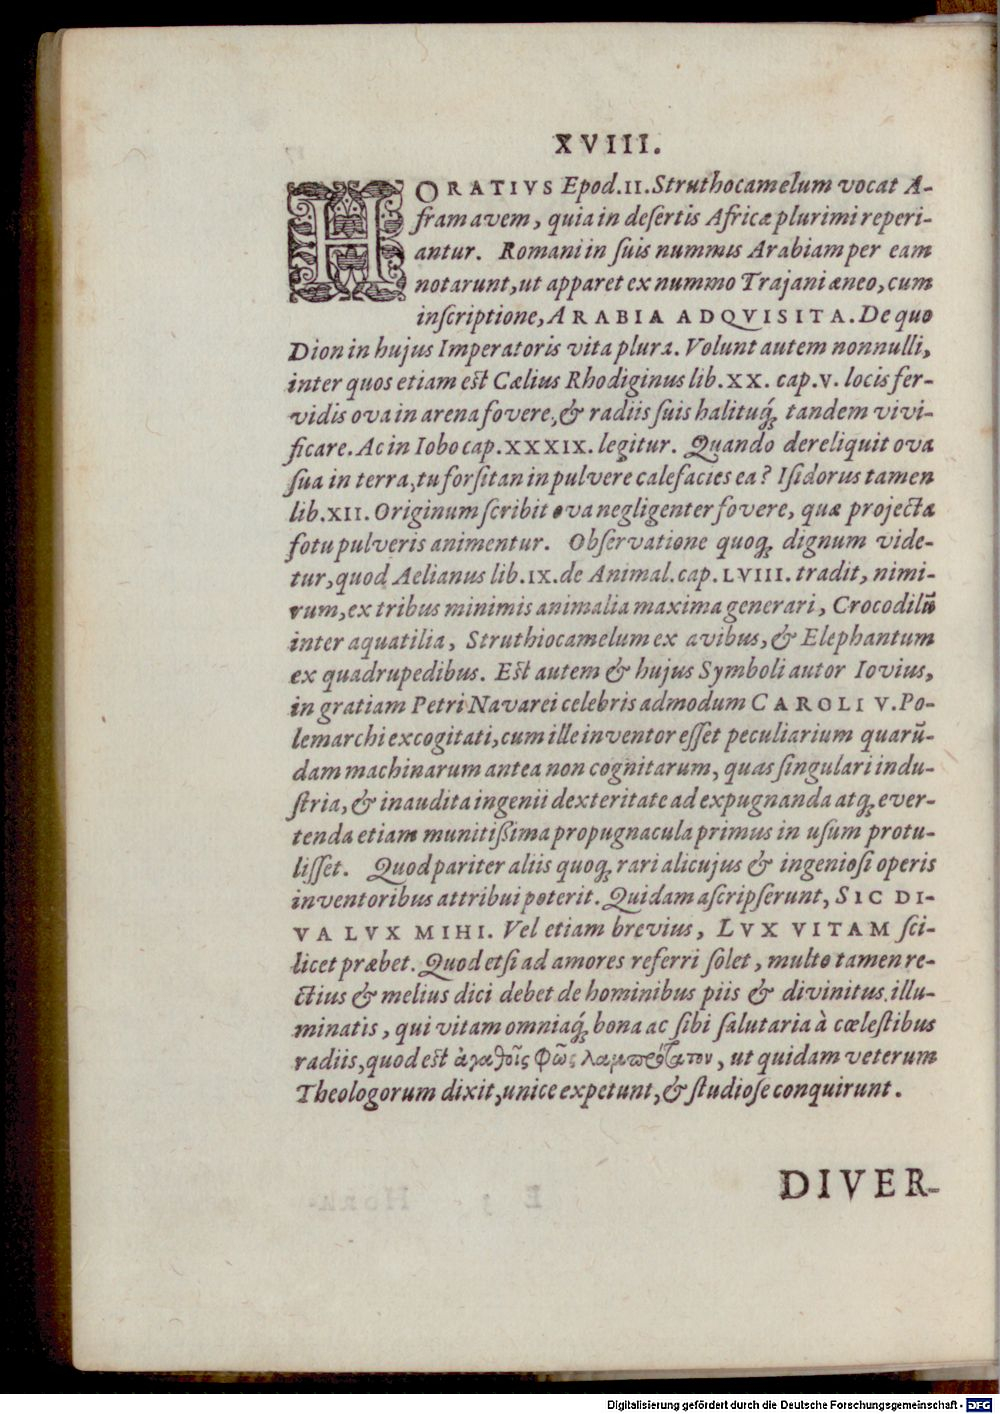 XVIII.
HORATIVS Epod.II. Struthocamelum vocat A-
fram avem, quia in desertis Africæ plurimi reperi-
antur. Romani in suis nummis Arabiam per eam
notarunt, ut apparet ex nummo Trajani æneo, cum
inscriptione, ARABIA ADQVISITA. De quo
Dion in hujus Imperatoris vita plura. Volunt autem nonnulli,
inter quos etiam est Cælius Rhodiginus lib.XX. cap.V. locis fer-
vidis ova in arena fovere, & radiis suis halituq́; tandem vivi-
ficare. Ac in Iobo cap.XXXIX. legitur. Quando dereliquit ova
sua in terra, tu forsitan in pulvere calefacies ea? Isidorus tamen
lib.XII. Originum scribit ova negligenter fovere, quæ projecta
fotu pulveris animentur. Observatione quoq; dignum vide-
tur, quod Aelianus lib.IX. de Animal. cap.LVIII. tradit, nimi-
rum, ex tribus minimis animalia maxima generari, Crocodilũ
inter aquatilia, Struthiocamelum ex avibus, & Elephantum
ex quadrupedibus. Est autem & hujus Symboli autor Iovius,
in gratiam Petri Navarei celebris admodum CAROLI V. Po-
lemarchi excogitati, cum ille inventor esset peculiarium quarũ-
dam machinarum antea non cognitarum, quas singulari indu-
stria, & inaudita ingenii dexteritate ad expugnanda atq; ever-
tenda etiam munitißima propugnacula primus in usum protu-
lisset. Quod pariter aliis quoq; rari alicujus & ingeniosi operis
inventoribus attribui poterit. Quidam ascripserunt, SIC DI-
VA LVX MIHI. Vel etiam brevius, LVX VITAM sci-
licet præbet. Quod etsi ad amores referri solet, multo tamen re-
ctius & melius dici debet de hominibus piis & divinitus illu-
minatis, qui vitam omniaq́; bona ac sibi salutaria à cœlestibus
radiis, quod est ἀγαθοῖς φῶς λαμπρότατον, ut quidam veterum
Theologorum dixit, unice expetunt, & studiose conquirunt.
DIVER-
Digitalisierung gefördert durch die Deutsche Forschungsgemeinschaft - DFG